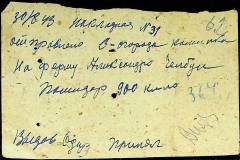 30/8 43 накладная №31
отправлено с огорода калинка
На ферму Александро Челбуи
Помидор 900 кило
364
Выдов Принял